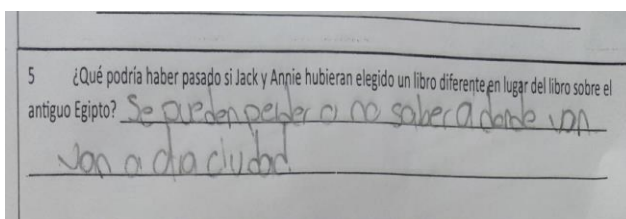 5 ¿Qué podría haber pasado si Jack y Annie hubieran elegido un libro diferente en lugar del libro sobre el
antiguo Egipto? Se pueden pelder o no saber a donde van
van a otra ciudad